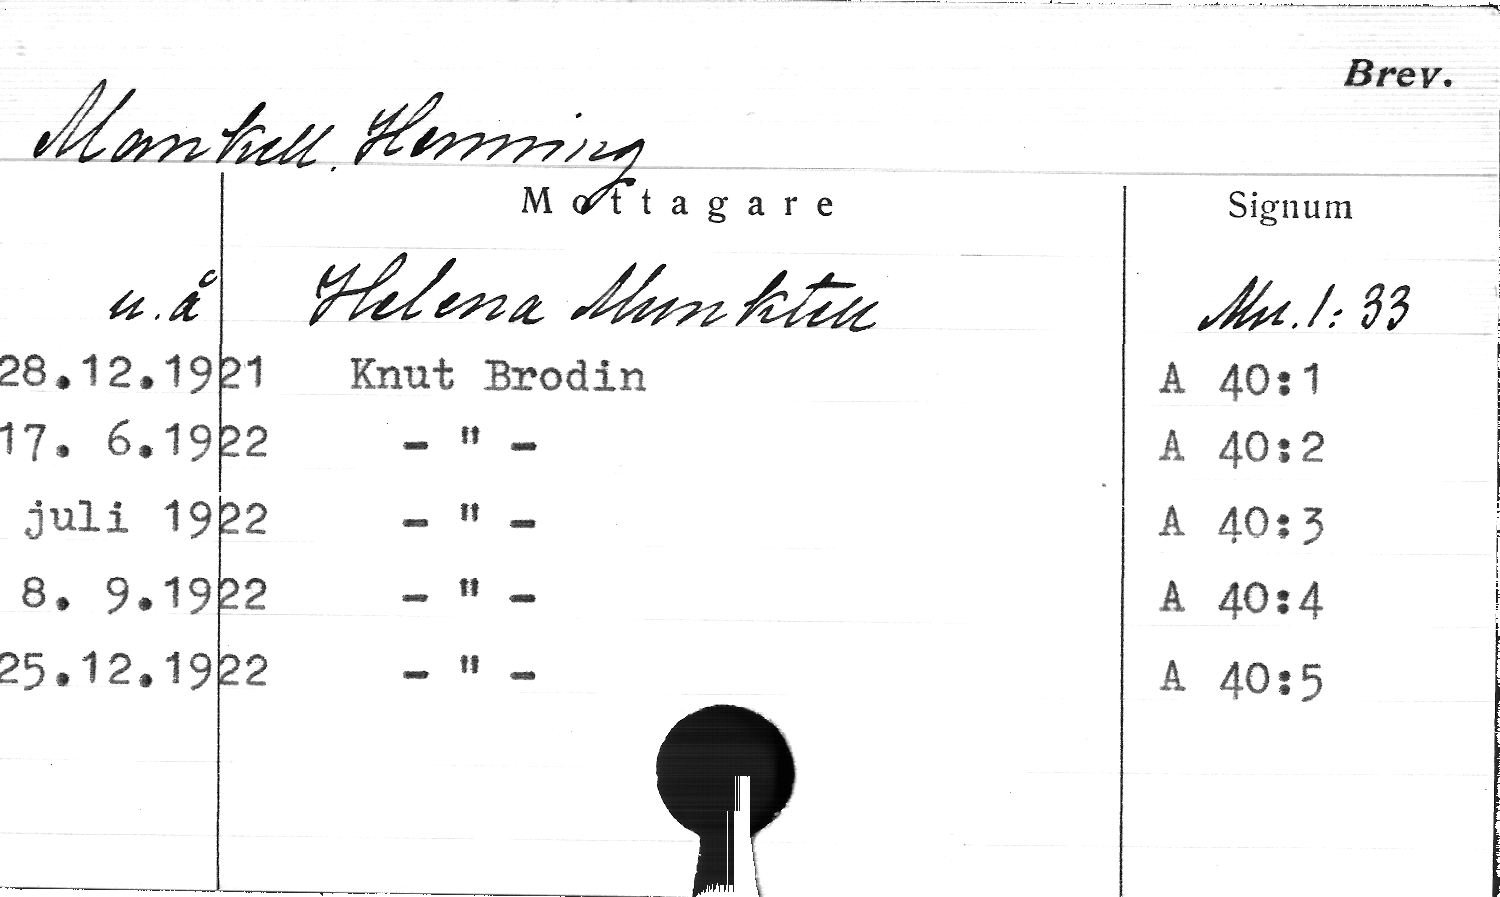 Brev.
Mankell, Henning
Mottagare Signum
u.å Helena Munktell Mu.1:33
28.12.1921 Knut Brodin A 40:1
17. 6.1922 - " - A 40:2
juli 1922 - " - A 40:3
8. 9.1922 - " - A 40:4
25.12.1922 - " - A 40:5